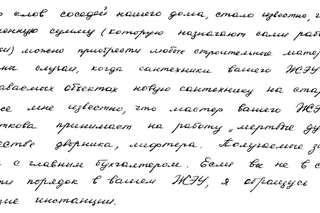 о слов соседей нашего дома, стало известно, ч
енную сумму (которую назначают сами раб
ки) можно приобрести любые строительные мате
ны случаи, когда сантехники вашего ЖЭУ
аваемых объектах новую сантехнику на ста
же мне известно, что мастер вашего ЖЭ
ткова принимает на работу „мертвые ду
естве дворника, лифтера. Получаемые з
с главным бухгалтером. Если вы не в с
ти порядок в вашем ЖЭУ, я обращусь
щие инстанции.